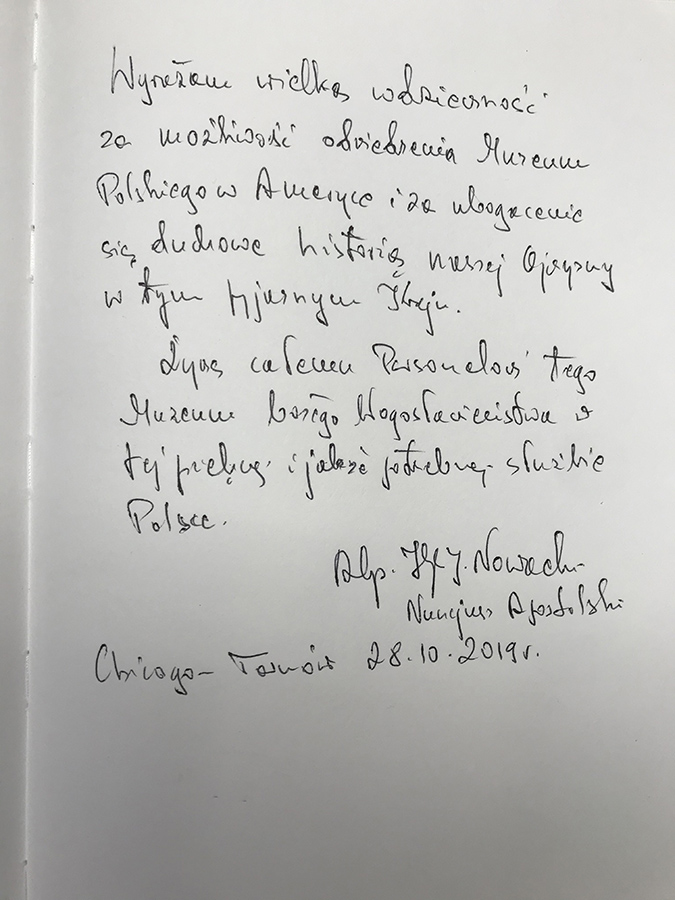 Wyrażam wielką wdzięczność
za możliwość odwiedzenia Muzeum
Polskiego w Ameryce i za ubogacenie
się duchowe historią naszej Ojczyzny
w tym Kraju.
Życzę całemu Personelowi tego
Muzeum Bożego błogosławieństwa w
tej pięknej i jakże potrzebnej służbie
Polsce.
Abp. J. Nowacki
Nuncjusz Apostolski
Chicago - Tarnów 28.10.2019r.